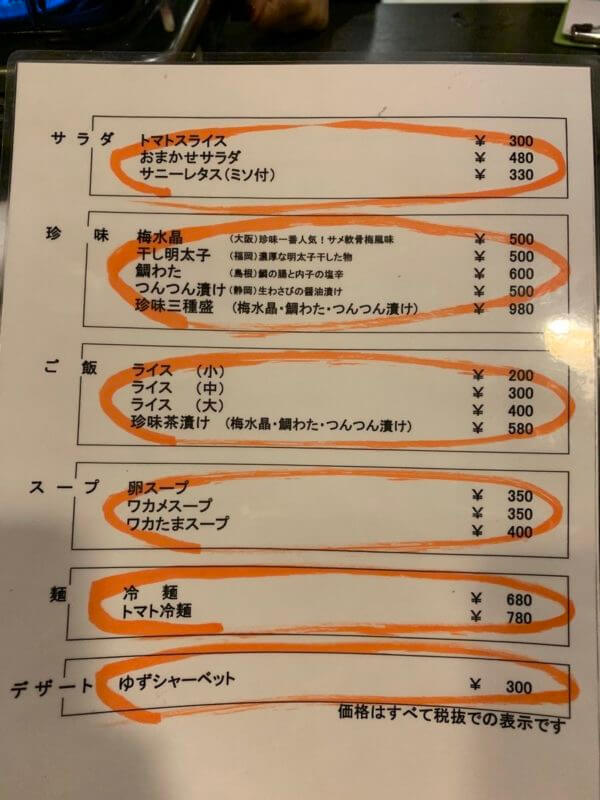 サラダ
トマトスライス ￥ 300
おまかせサラダ ￥ 480
サニーレタス(ミソ付) ￥ 330
珍 味
梅水晶 (大阪)珍味一番人気！サメ軟骨梅風味 ￥ 500
干し明太子 (福岡)濃厚な明太子干した物 ￥ 500
鯛わた (島根)鯛の腸と内子の塩辛 ￥ 600
つんつん漬け (静岡)生わさびの醤油漬け ￥ 500
珍味三種盛 (梅水晶・鯛わた・つんつん漬け) ￥ 980
ご 飯
ライス (小) ￥ 200
ライス (中) ￥ 300
ライス (大) ￥ 400
珍味茶漬け (梅水晶・鯛わた・つんつん漬け) ￥ 580
スープ
卵スープ ￥ 350
ワカメスープ ￥ 350
ワカたまスープ ￥ 400
麺
冷 麺 ￥ 680
トマト冷麺 ￥ 780
デザート
ゆずシャーベット ￥ 300
価格はすべて税抜での表示です